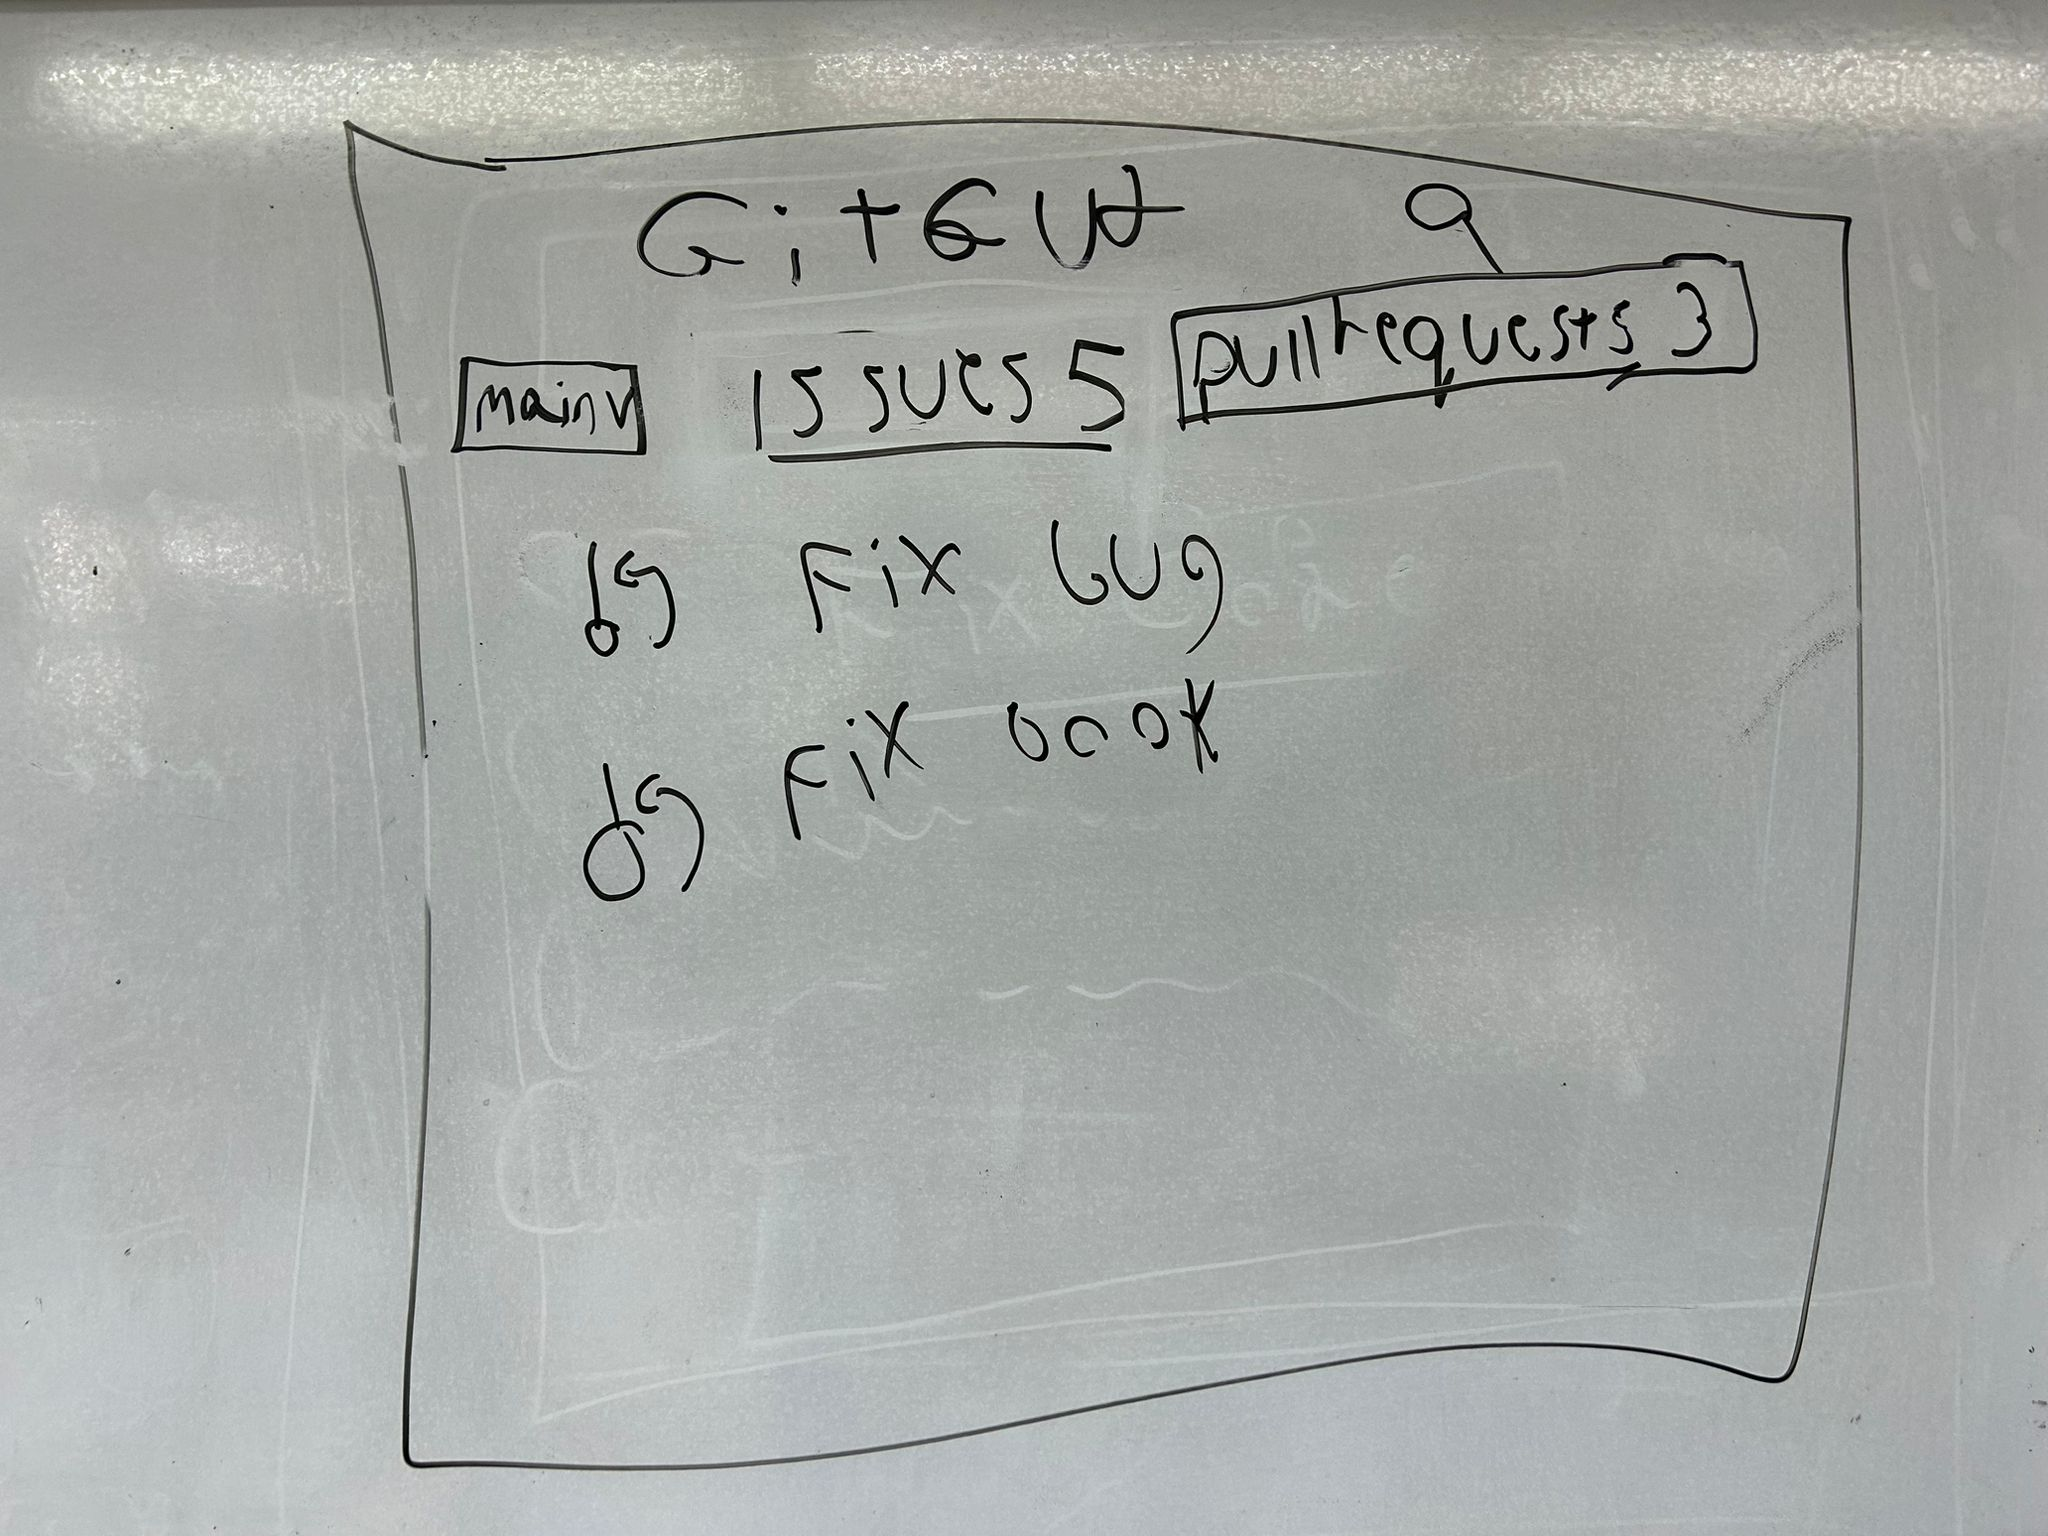 GitGud
main v
issues 5
pull requests 3
Fix bug
Fix